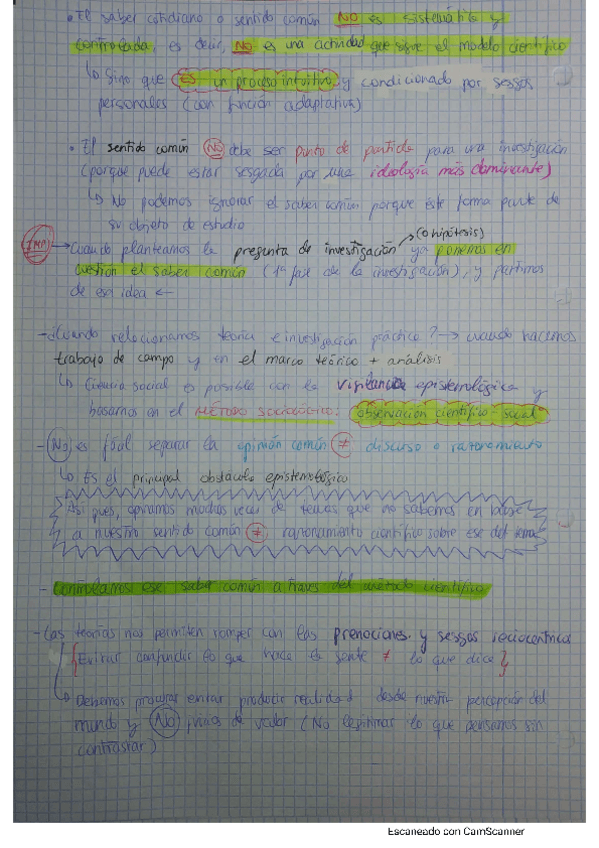 • El saber cotidiano o sentido común NO es sistemático y
controlada, es decir, NO es una actividad que sigue el modelo científico
↳ Sino que ES un proceso intuitivo y condicionado por sesgos
personales (con función adaptativa)
• El sentido común NO debe ser punto de partida para una investigación
(porque puede estar sesgada por una ideología más dominante)
↳ No podemos ignorar el saber común porque este forma parte de
su objeto de estudio
(o hipótesis)
IMP → Cuando planteamos la pregunta de investigación ya ponemos en
cuestión el saber común (1ª fase de la investigación), y partimos
de esa idea ←
- ¿Cuando relacionamos teoría e investigación práctica? → cuando hacemos
trabajo de campo y en el marco teórico + análisis
↳ Ciencia social es posible con la vigilancia epistemológica y
basarnos en el método sociológico: observación científico-social
- No es fácil separar la opinión común ≠ discurso o razonamiento
↳ Es el principal obstáculo epistemológico
Así pues, opinamos muchas veces de temas que no sabemos en base
a nuestro sentido común ≠ razonamiento científico sobre ese det tema
- Controlamos ese saber común a traves del método científico
- Las teorías nos permiten romper con las prenociones y sesgos sociocentrica
{Evitar confundir lo que hace la gente ≠ lo que dice}
↳ Debemos procurar evitar producir realidad desde nuestra percepción del
mundo y NO juicios de valor (No legitimar lo que pensamos sin
contrastar)
Escaneado con CamScanner